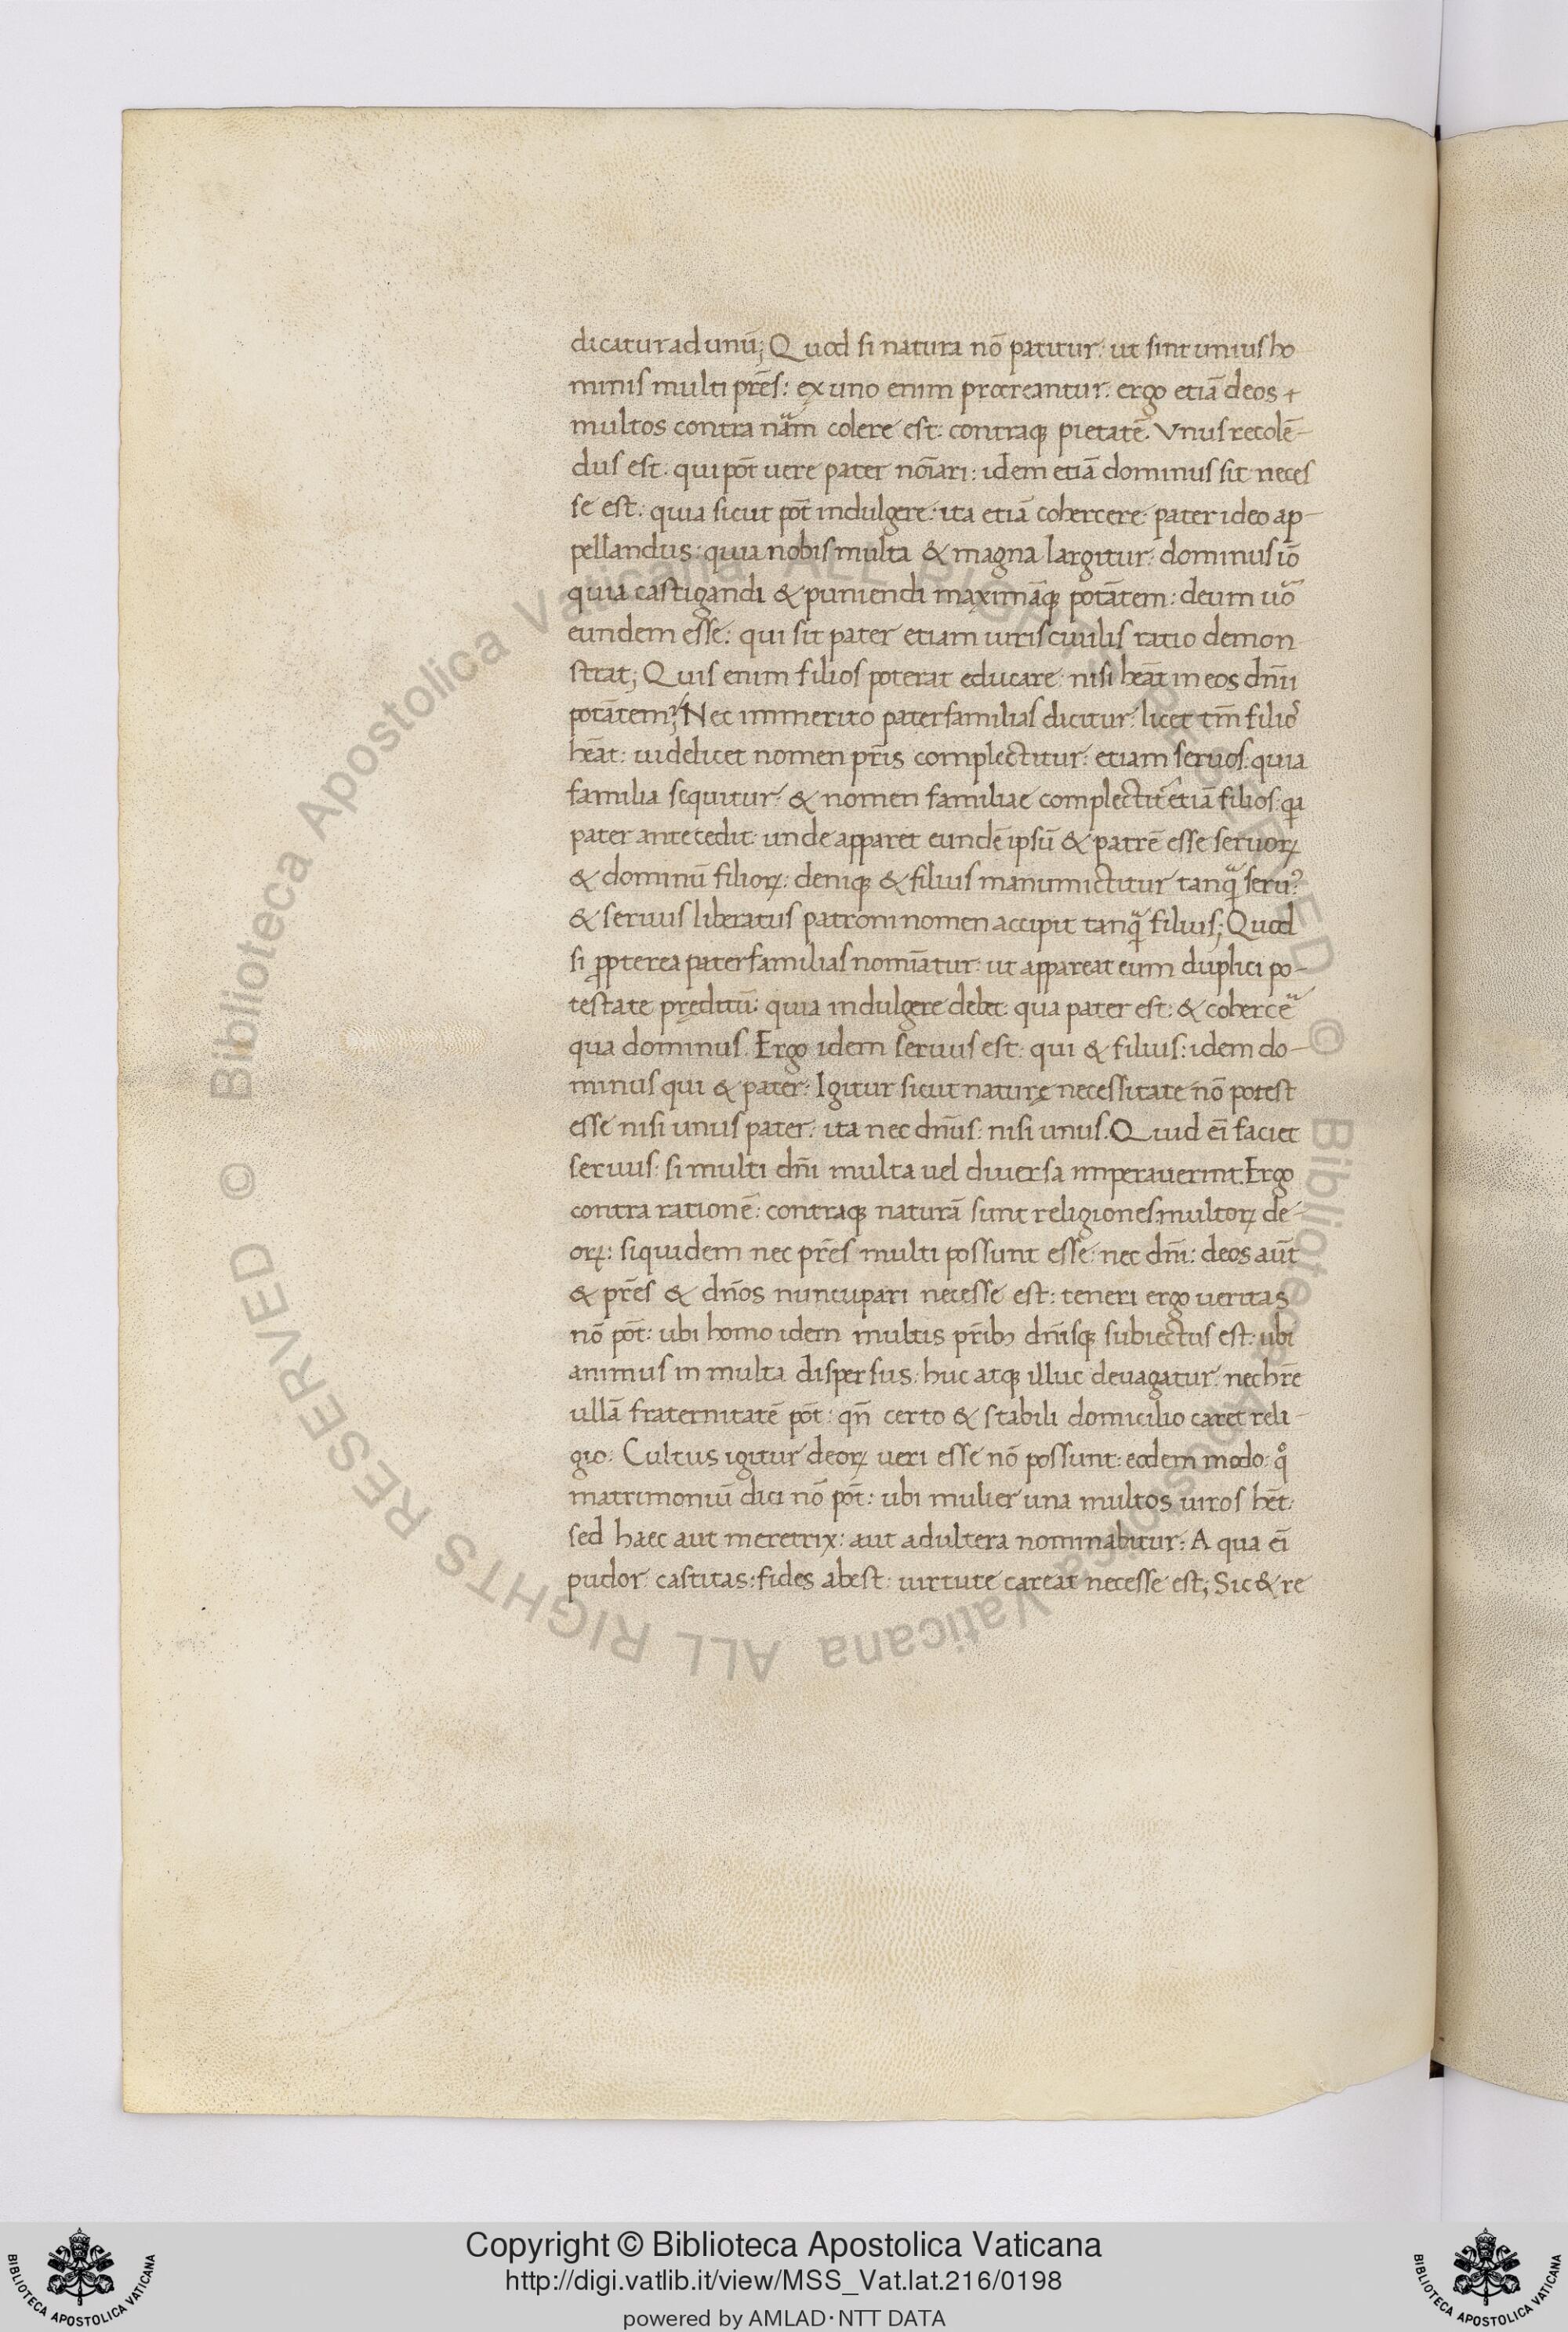 dicatur ad unū; Quod si natura nō patitur: ut sint unius ho
minis multi pr̄es: ex uno enim procreantur: ergo etiā deos +
multos contra nām colere est: contraq; pietatē. Vnus r̄ecolē-
dus est. qui pōt uere pater nōiari: idem etiā dominus sit neces
se est: quia sicut pōt indulgere: ita etiā cohercere: pater ideo ap-
pellandus: quia nobis multa & magna largitur: dominus iō
quia castigandi & puniendi maximāq; potātem: deum uō
eundem esse: qui sit pater etiam iuris ciuilis ratio demon
strat; Quis enim filios poterat educare: nisi heāt in eos dn̄ii
potātem? Nec immerito paterfamilias dicitur: licet tm̄ filiꝰ
heāt: uidelicet nomen pr̄is complectitur: etiam seruos: quia
familia sequitur: & nomen familiae complectit᷑ etiā filios: qa
pater antecedit: unde apparet eundē ipsū & patrē esse seruoꝝ
& dominū filioꝝ: deniq; & filius manumictitur tanqā seruꝰ
& seruus liberatus patroni nomen accipit tanqā filius; Quod
si ꝓpterea paterfamilias nomīatur: ut appareat eum duplici po-
testate pręditū: quia indulgere debet: qua pater est: & cohercē
qua dominus. Ergo idem seruus est: qui & filius: idem do-
minus qui & pater: Igitur sicut naturę necessitate nō potest
esse nisi unus pater: ita nec dn̄us: nisi unus. Quid eī faciet
seruus: si multi dn̄i multa uel diuersa imperauerint. Ergo
contra rationē: contraq; naturā sunt religiones multoꝝ de-
oꝝ: siquidem nec pr̄es multi possunt esse: nec dn̄i: deos aūt
& pr̄es & dn̄os nuncupari necesse est: teneri ergo ueritas
nō pōt: ubi homo idem multis pr̄ibꝫ dn̄isq; subiectus est: ubi
animus in multa dispersus: huc atq; illuc deuagatur: nec hr̄e
ullā fraternitatē pōt: qn̄ certo & stabili domicilio caret reli-
gio: Cultus igitur deoꝝ ueri esse nō possunt: eodem modo: qͦ
matrimoniū dici nō pōt: ubi mulier una multos uiros hēt:
sed haec aut meretrix: aut adultera nominabitur: A qua eī
pudor: castitas: fides abest: uirtute careat necesse est; Sic & re
Copyright © Biblioteca Apostolica Vaticana
http://digi.vatlib.it/view/MSS_Vat.lat.216/0198
powered by AMLAD·NTT DATA
© Biblioteca Apostolica Vaticana ALL RIGHTS RESERVED © Biblioteca Apostolica Vaticana ALL RIGHTS RESERVED
BIBLIOTECA APOSTOLICA VATICANA
BIBLIOTECA APOSTOLICA VATICANA